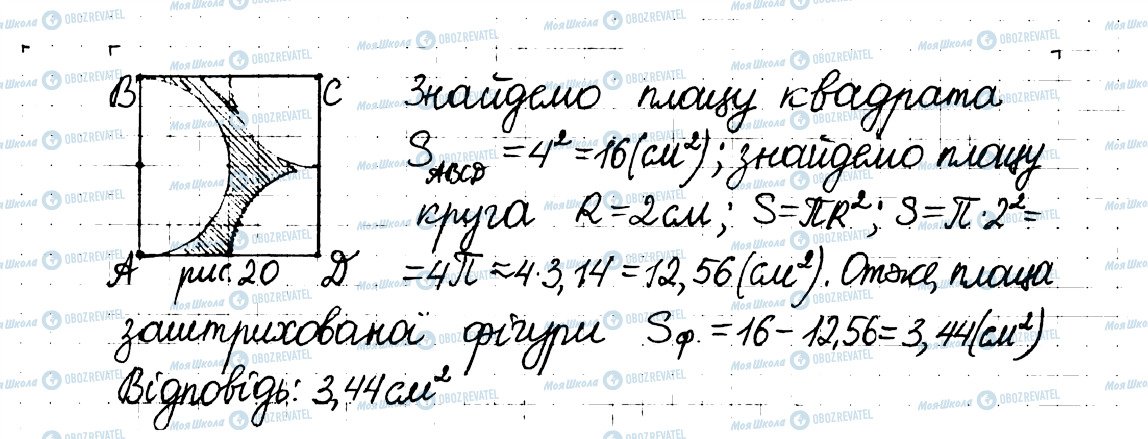 B C Знайдемо площу квадрата
S ABCD = 4² = 16 (см²); знайдемо площу
круга R = 2 см; S = πR²; S = π·2² =
A рис. 20 D = 4π ≈ 4·3,14 = 12,56 (см²). Отже, площа
заштрихованої фігури Sф. = 16 – 12,56 = 3,44 (см²)
Відповідь: 3,44 см²
Моя Школа OBOZREVATEL